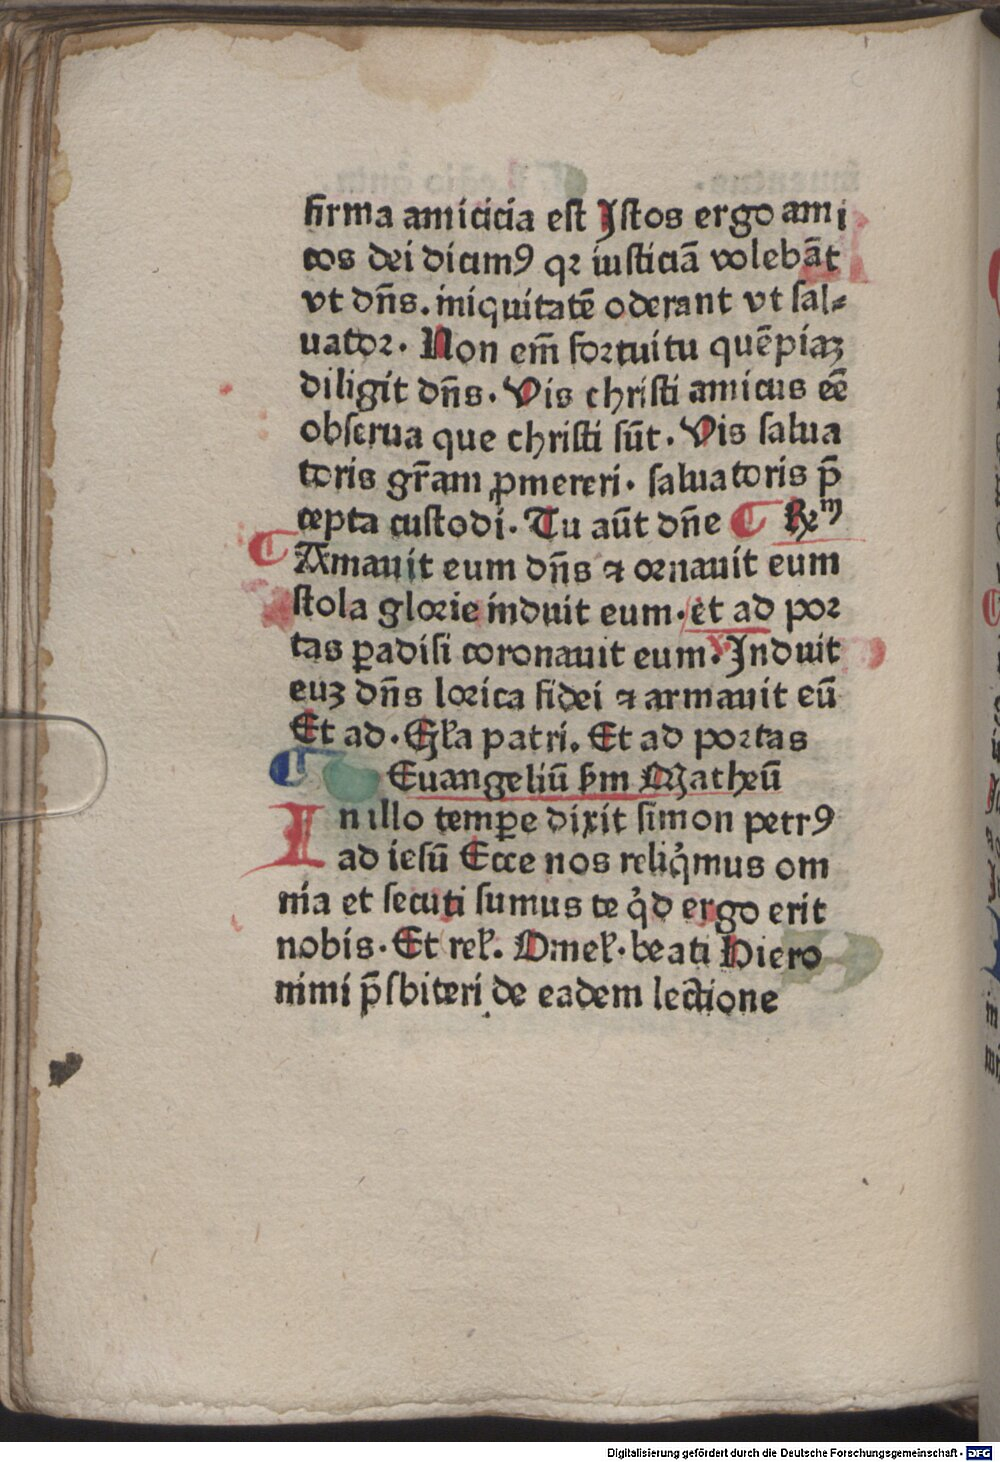 firma amicicia est Istos ergo ami
cos dei dicimꝰ qꝛ iusticiā volebāt
vt dn̄s. iniquitatē oderant vt sal⸗
uatoꝛ. Non em̄ foꝛtuitu quēpiaꝫ
diligit dn̄s. Vis christi amicus eē
obserua que christi sūt. Vis salua
toris gr̄am ꝓmereri. saluatoris p̄
cepta custodi. Tu aūt dn̄e ¶ Rm̄
¶ Amauit eum dn̄s ⁊ oꝛnauit eum
stola gloꝛie induit eum. et ad poꝛ
tas ꝑadisi coronauit eum. Induit
euꝫ dn̄s loꝛica fidei ⁊ armauit eū
Et ad. Gl̓a patri. Et ad poꝛtas
¶ Euangeliū ẜm Matheū
In illo tempꝑe dixit simon petrꝰ
ad iesū Ecce nos reliq̇mus om
nia et secuti sumus te q̇d ergo erit
nobis. Et rel̓. Omel̓. beati Hiero
nimi p̄sbiteri de eadem lectione
Digitalisierung gefördert durch die Deutsche Forschungsgemeinschaft - DFG